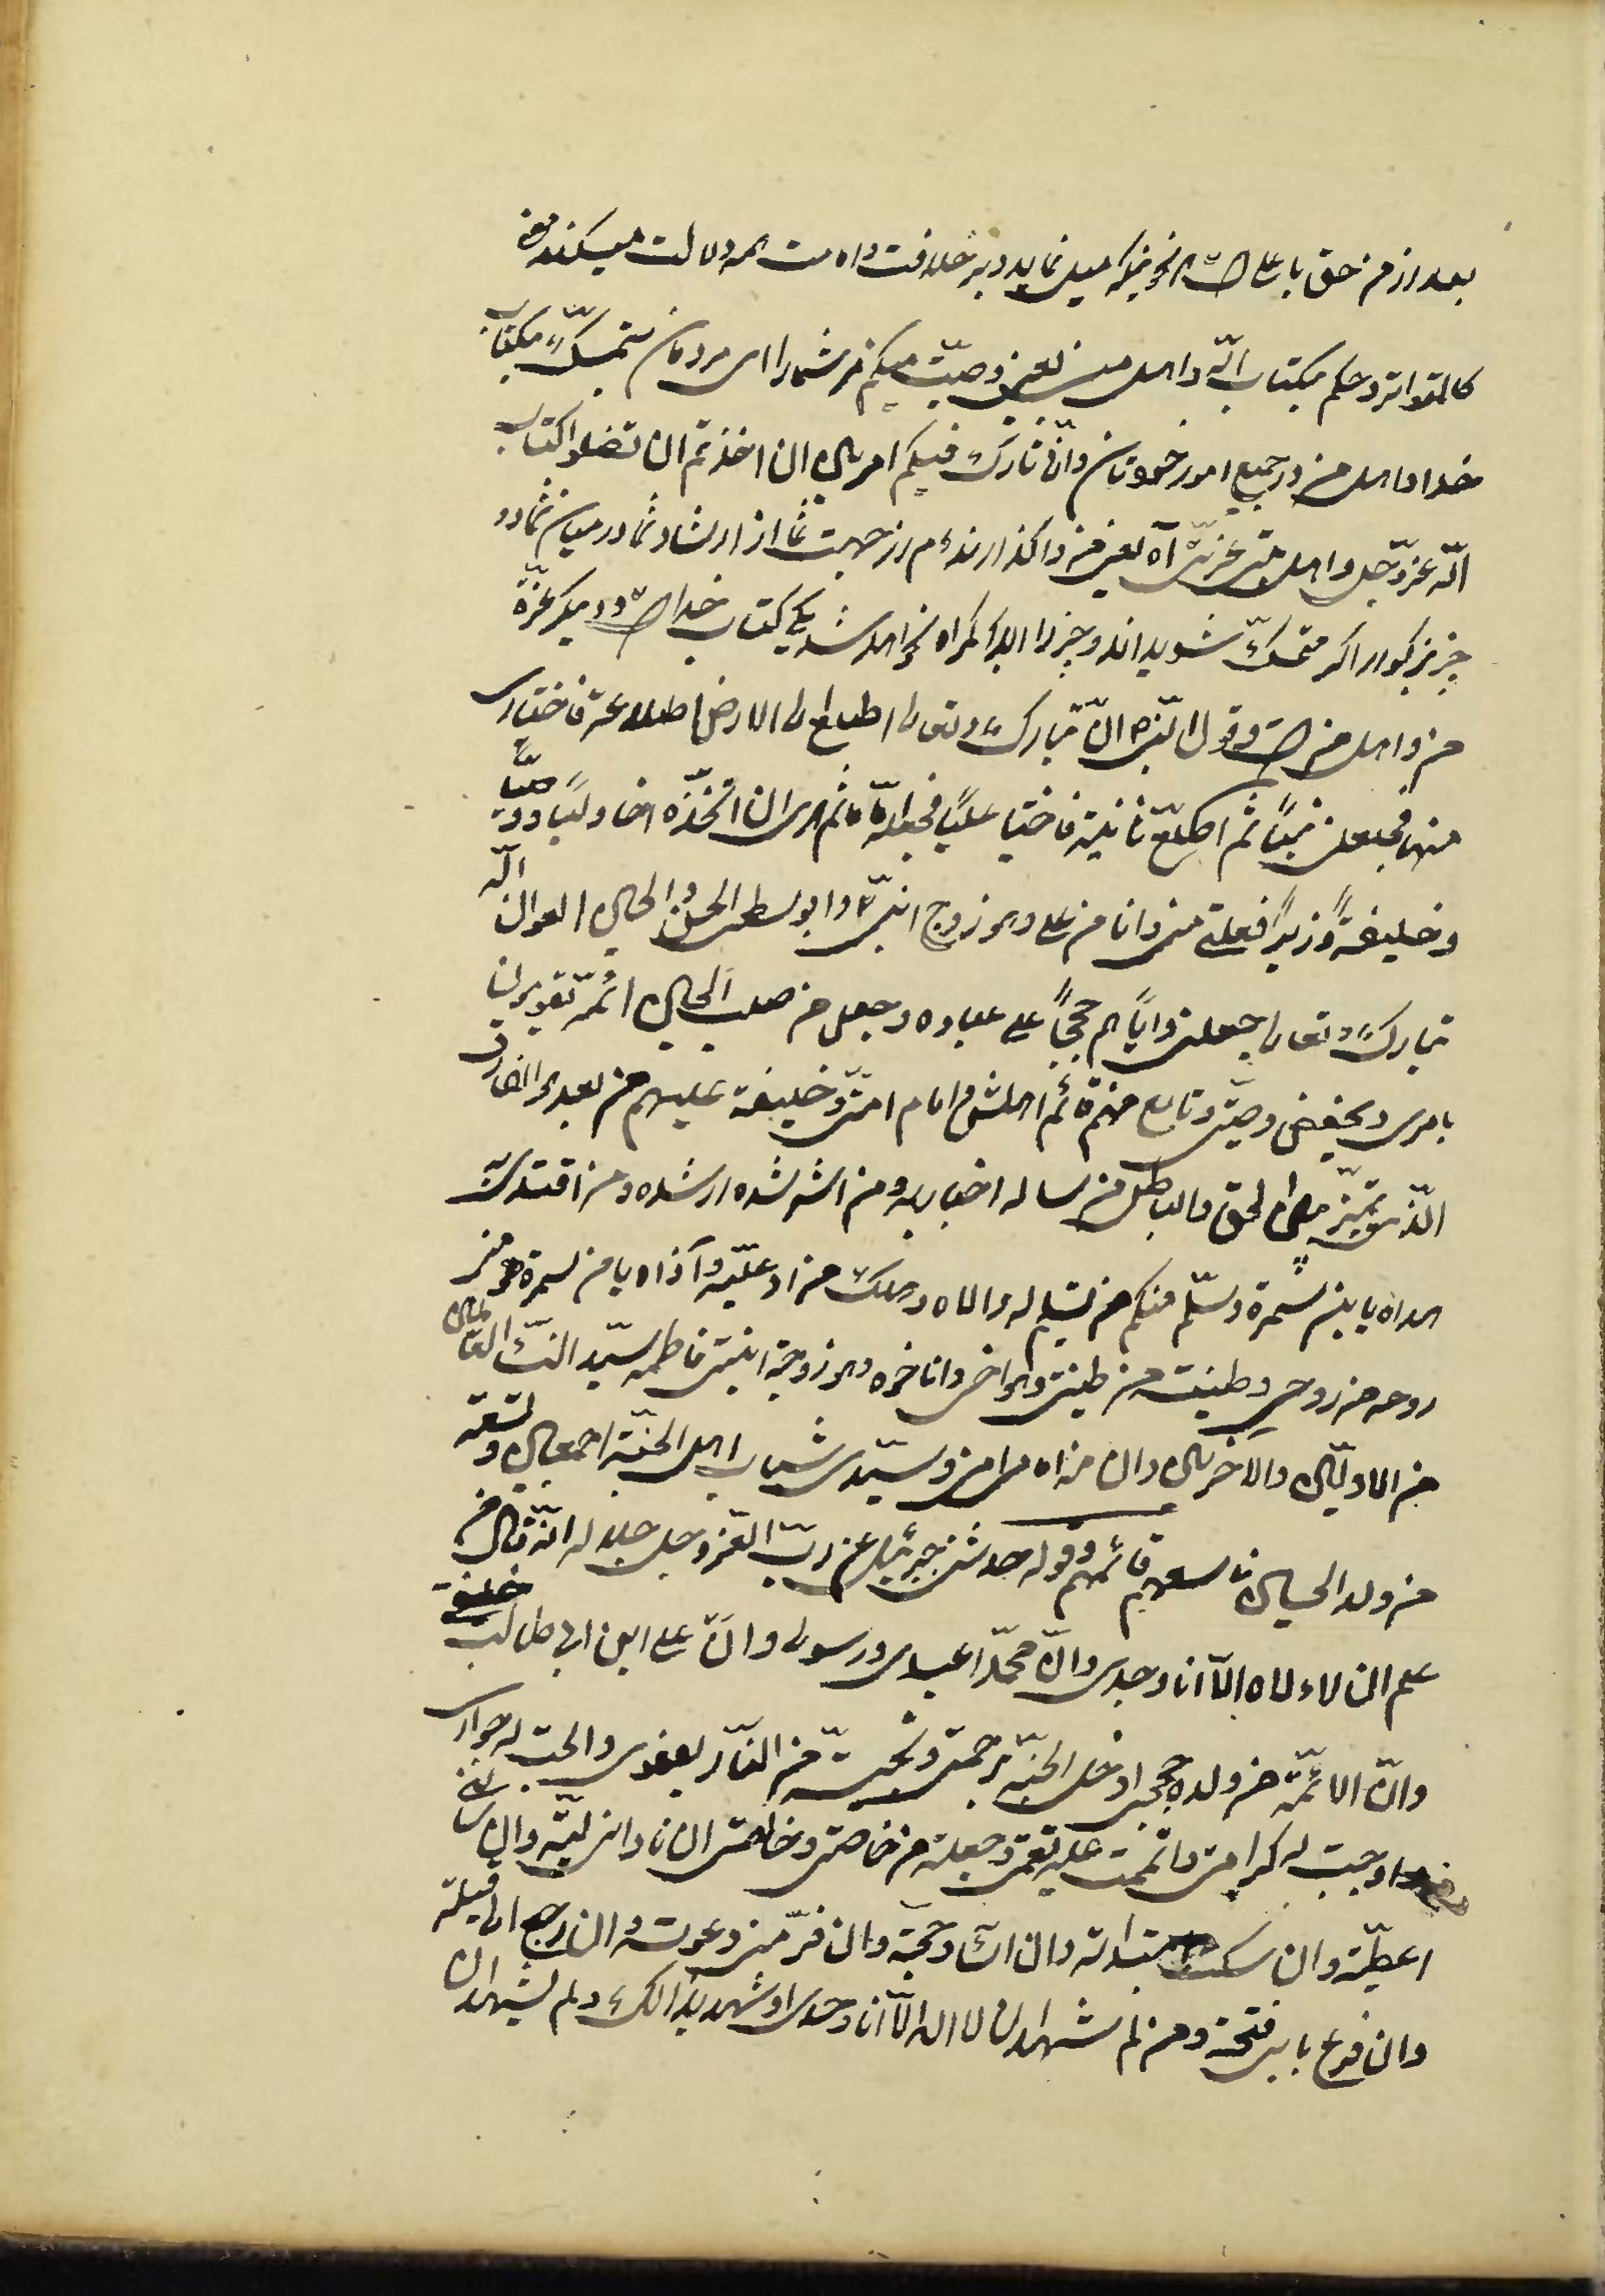 بعد از من حق با علی است هر نحویکه میل نماید و بر خلافت و امامت همه دلالت میکند معنی
کالمتواتر وحکم بکتاب الله واهل بیتی یعنی وصیت میکنم من شما را ای مردمان بتمسک بکتاب
خدا واهل من در جمیع امور خودتان وانی تارک فیکم امرین ان اخذتم ان تضلوا کتاب
الله عزوجل واهل بیتی عترتی آه یعنی من واگذارنده‌ام از جهت شما از ارشاد شما در میان شما دو
چیز بزرگوار اگر متمسک شوید اند وچیز را ابدا گمراه نخواهد شد یکی کتاب خدا است و دیگر عترة
من واهل من است وقول النبی ان تبارک وتعالی اطلع الی الارض اطلاعة فاختیاری
منها فجعلنی نبیاً ثم اطلع ثانیة فاختیا علیاً فجعله اماماً ثم امری ان اتخذه اخا ولیا ووصیاً
وخلیفةً وزیراً فعلی منی وانا من علی وهو زوج ابنتی وابو سطی الحسن والحسین الا وان الله
تبارک وتعالی جعلنی وایاهم حججاً علی عباده وجعل من صلب الحسین ائمة یقومون
بامری ویحفظن وصیتی وتاسع منهم قائم اهلبیتی وامام امتی وخلیفة علیهم من بعدی
الذی یتمیز بین الحق والباطل من ساله اخباریه ومن استرشده ارشده ومن اقتدی به
هداه یابن سمرة وسلم منکم من یسلم له والاه وهلک من اد علیه وآذاه یابن سمرة هو منی
روحه من روحی وطینته من طینتی وهو اخی وانا اخوه وهو زوجة ابنتی فاطمة سید النساء العالمین
من الاولین والآخرین وان منه امامی امتی وسیدی شباب اهل الجنة اجمعین وتسعة
من ولد الحسین تاسعهم قائمهم وقوله حدثنی جبرئیل عن رب العز وجل جلاله انه قال من
علم ان لا اله الا انا وحدی وان محمدا عبدی ورسولی وان علی ابن ابی طالب خلیفتی
وان الائمة من ولده حججی ادخل الجنة برحمتی ونجیته من النار بعفوی والحبت له جواری
واوجبت له کرامتی واتممت علیه نعمتی وجعلته من خاصتی وخالصتی ان نادانی لبیته وان سالنی
اعطیته وان سکت ابتداته وان اساء رحمته وان فر منی دعوته وان رجع الی قبلته
وان قرع بابی فتحته ومن لم یشهد ان لا اله الا انا وحدی او شهد بذالک ولم یشهد ان